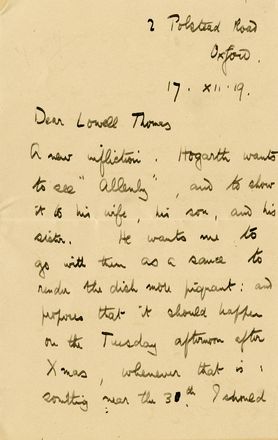 2 Polstead Road
Oxford.
17. XII. 19.
Dear Lowell Thomas
A new infliction. Hogarth wants
to see "Allenby", and to show
it to his wife, his son, and his
sister. He wants me to
go with them as a sauce to
render the dish more piquant: and
proposes that it should happen
on the Tuesday afternoon after
Xmas, whenever that is:
something near the 30th. I should